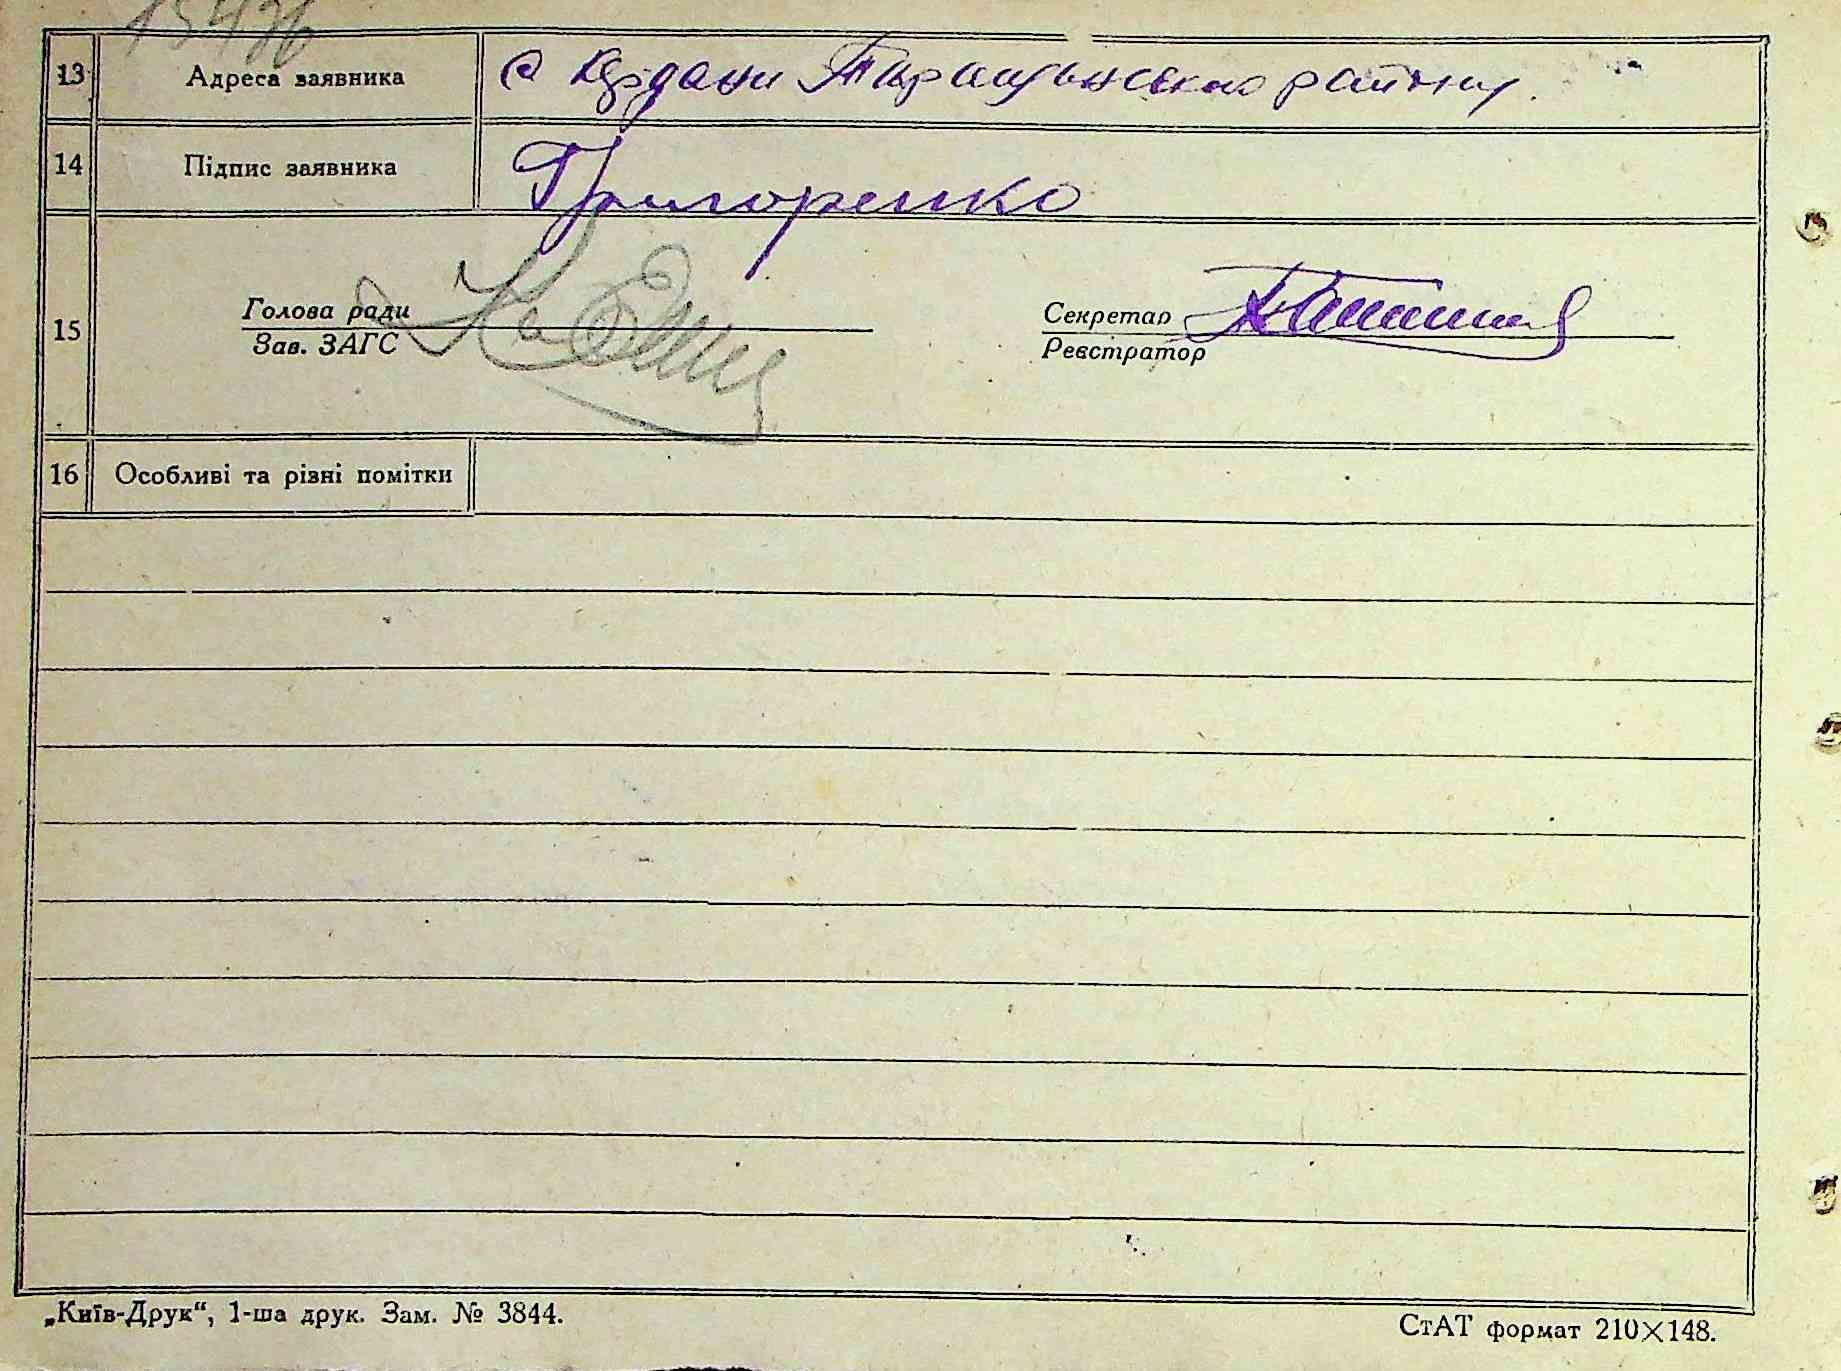 15436
13 Адреса заявника с Кердани Таращанського району.
14 Підпис заявника Григоренко
15
Голова ради Секретар
Зав. ЗАГС Реєстратор
16 Особливі та різні помітки
„Київ-Друк“, 1-ша друк. Зам. № 3844.
СтАТ формат 210×148.